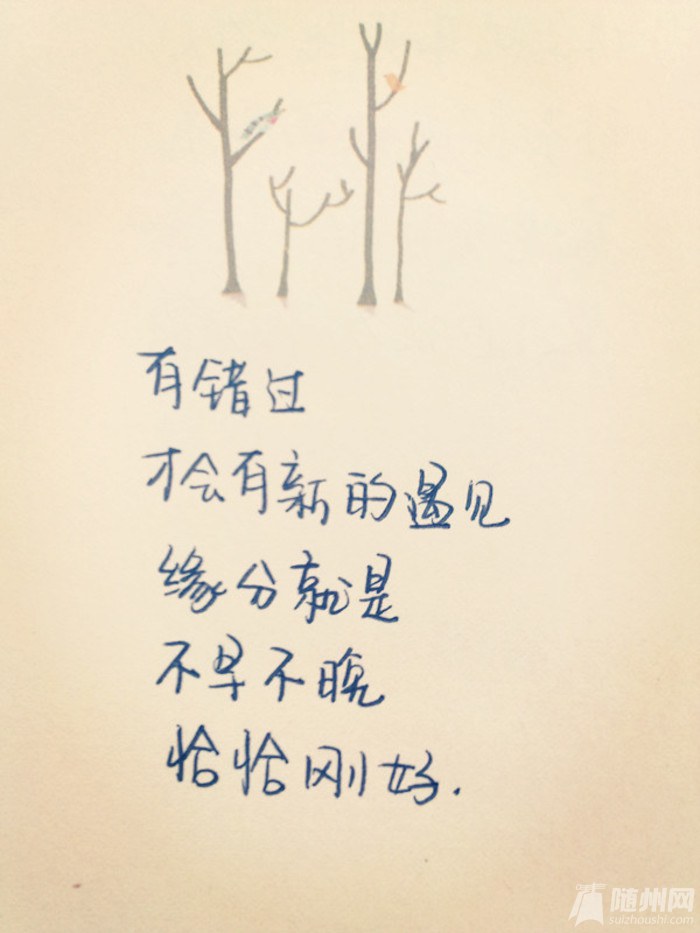 有错过
才会有新的遇见
缘分就是
不早不晚
恰恰刚好.
随州网
suizhoushi.com